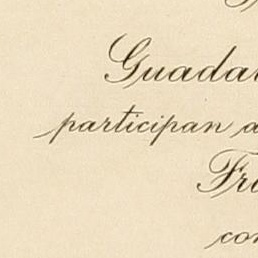 Guadal
participan a
Fra
con